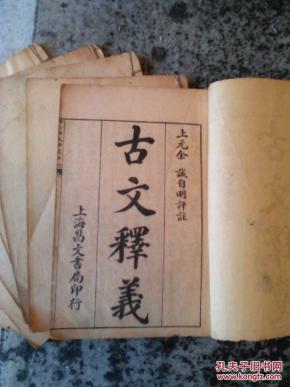 上元余 誠自明評註
古文釋義
上海昌文書局印行
孔夫子旧书网